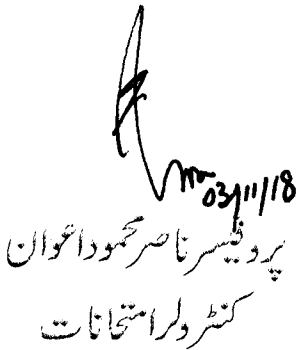 03/11/18
پروفیسر ناصر محمود اعوان
کنٹرولر امتحانات